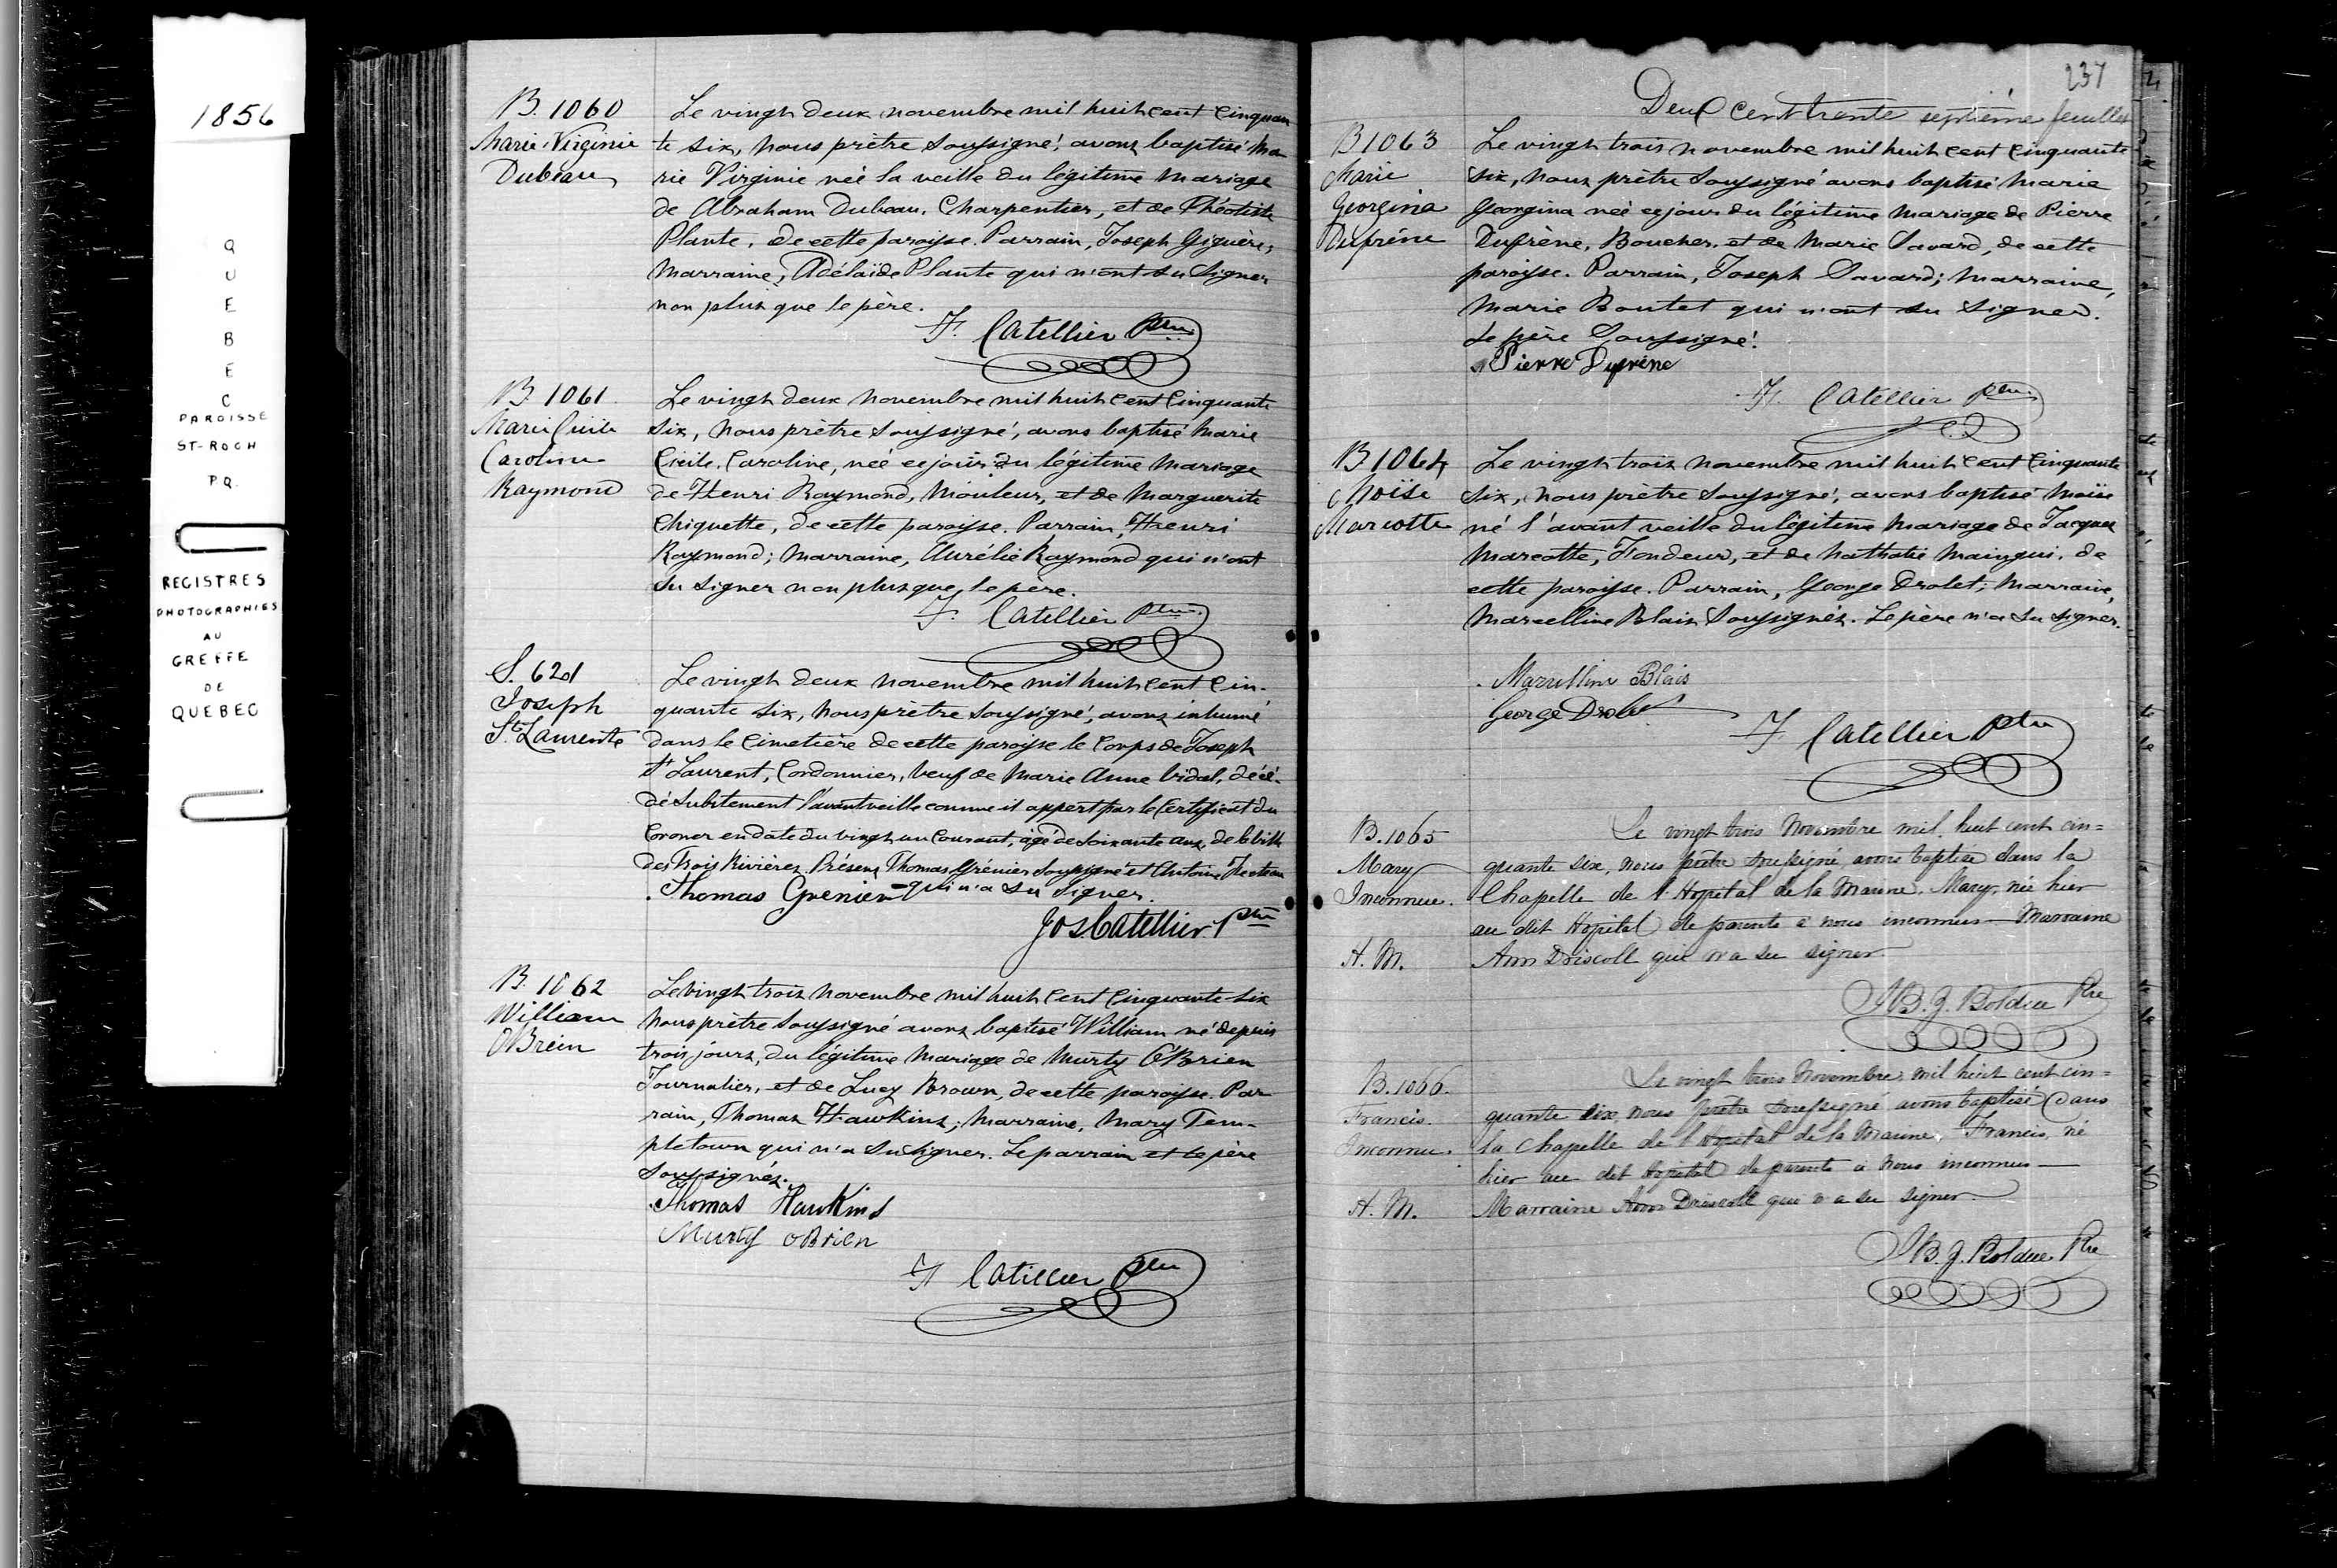 1856
QUEBEC
PAROISSE
ST-ROCH
P.Q.
REGISTRES
PHOTOGRAPHIES
AU
GREFFE
DE
QUEBEC
B. 1060
Marie Virginie
Dubeau
Le vingt deux novembre mil huit cent cinquan
te six, nous prêtre soussigné, avons baptisé Ma
rie Virginie née la veille du légitime mariage
de Abraham Dubeau, Charpentier, et de Théotiste
Plante, de cette paroisse. Parrain, Joseph Giguère,
Marraine, Adélaïde Plante qui n'ont su signer
non plus que le père.
F. Catellier Ptre
B. 1061
Marie Cécile
Caroline
Raymond
Le vingt deux novembre mil huit cent cinquante
six, nous prêtre soussigné, avons baptisé Marie
Cécile Caroline, née ce jour du légitime mariage
de Henri Raymond, Mouleur, et de Marguerite
Chiquette, de cette paroisse. Parrain, Henri
Raymond; Marraine, Aurélie Raymond qui n'ont
su signer non plus que le père.
F. Catellier Ptre
S. 621
Joseph
St. Laurente
Le vingt deux novembre mil huit cent cin-
quante six, nous prêtre soussigné, avons inhumé
dans le cimetière de cette paroisse le corps de Joseph
St Laurent, Cordonnier, veuf de Marie Anne Vidal, décé-
dé subitement l'avantveille comme il appert par le certificat du
Coroner en date du vingt un courant, âgé de soixante ans, de la ville
des Trois Rivières. Présens Thomas Grénier soussigné et Antoine
qui n'a su signer.
Thomas Grenier
Jos Catellier Ptre
B. 1062
William
OBrein
Le vingt trois novembre mil huit cent cinquante six
nous prêtre soussigné avons baptisé William né depuis
trois jours, du légitime mariage de Murty O'Brien
Journalier, et de Lucy Brown, de cette paroisse. Par
rain, Thomas Hawkins; Marraine, Mary Tem-
pletown qui n'a su signer. Le parrain et le père
soussignés.
Thomas Hawkins
Murty OBrien
F. Catellier Ptre
237
Deux Cent trente septième feuillet
B 1063
Marie
Georgina
Dufrène
Le vingt trois novembre mil huit cent cinquante
six, nous prêtre soussigné avons baptisé Marie
Georgina née ce jour du légitime mariage de Pierre
Dufrène, Boucher, et de Marie Savard, de cette
paroisse. Parrain, Joseph Savard; Marraine,
Marie Boutet qui n'ont su signer.
Le père soussigné.
Pierre Dufrène
F. Catellier Ptre
B 1064
Moïse
Marcotte
Le vingt trois novembre mil huit cent cinquante
six, nous prêtre soussigné, avons baptisé Moïse
né l'avant veille du légitime mariage de Jacques
Marcotte, Fondeur, et de Nathalie Maingui, de
cette paroisse. Parrain, George Drolet; Marraine,
Marcelline Blais soussignés. Le père n'a su signer.
Marcelline Blais
George Drolet
F. Catellier Ptre
B. 1065
Mary
Inconnue.
H. M.
Le vingt trois Novembre mil huit cent cin=
quante six, nous prêtre soussigné avons baptisé dans la
Chapelle de l'Hopital de la Marine, Mary, née hier
au dit Hopital de parents à nous inconnus — Marraine
Ann Driscoll qui n'a su signer
J.B.Z. Bolduc Ptre
B. 1066.
Francis.
Inconnu.
H. M.
Le vingt trois Novembre mil huit cent cin=
quante six, nous prêtre soussigné avons baptisé dans
la Chapelle de l'Hopital de la Marine, Francis, né
hier au dit hopital de parents à nous inconnus —
Marraine Ann Driscoll qui n'a su signer
J.B.Z. Bolduc Ptre